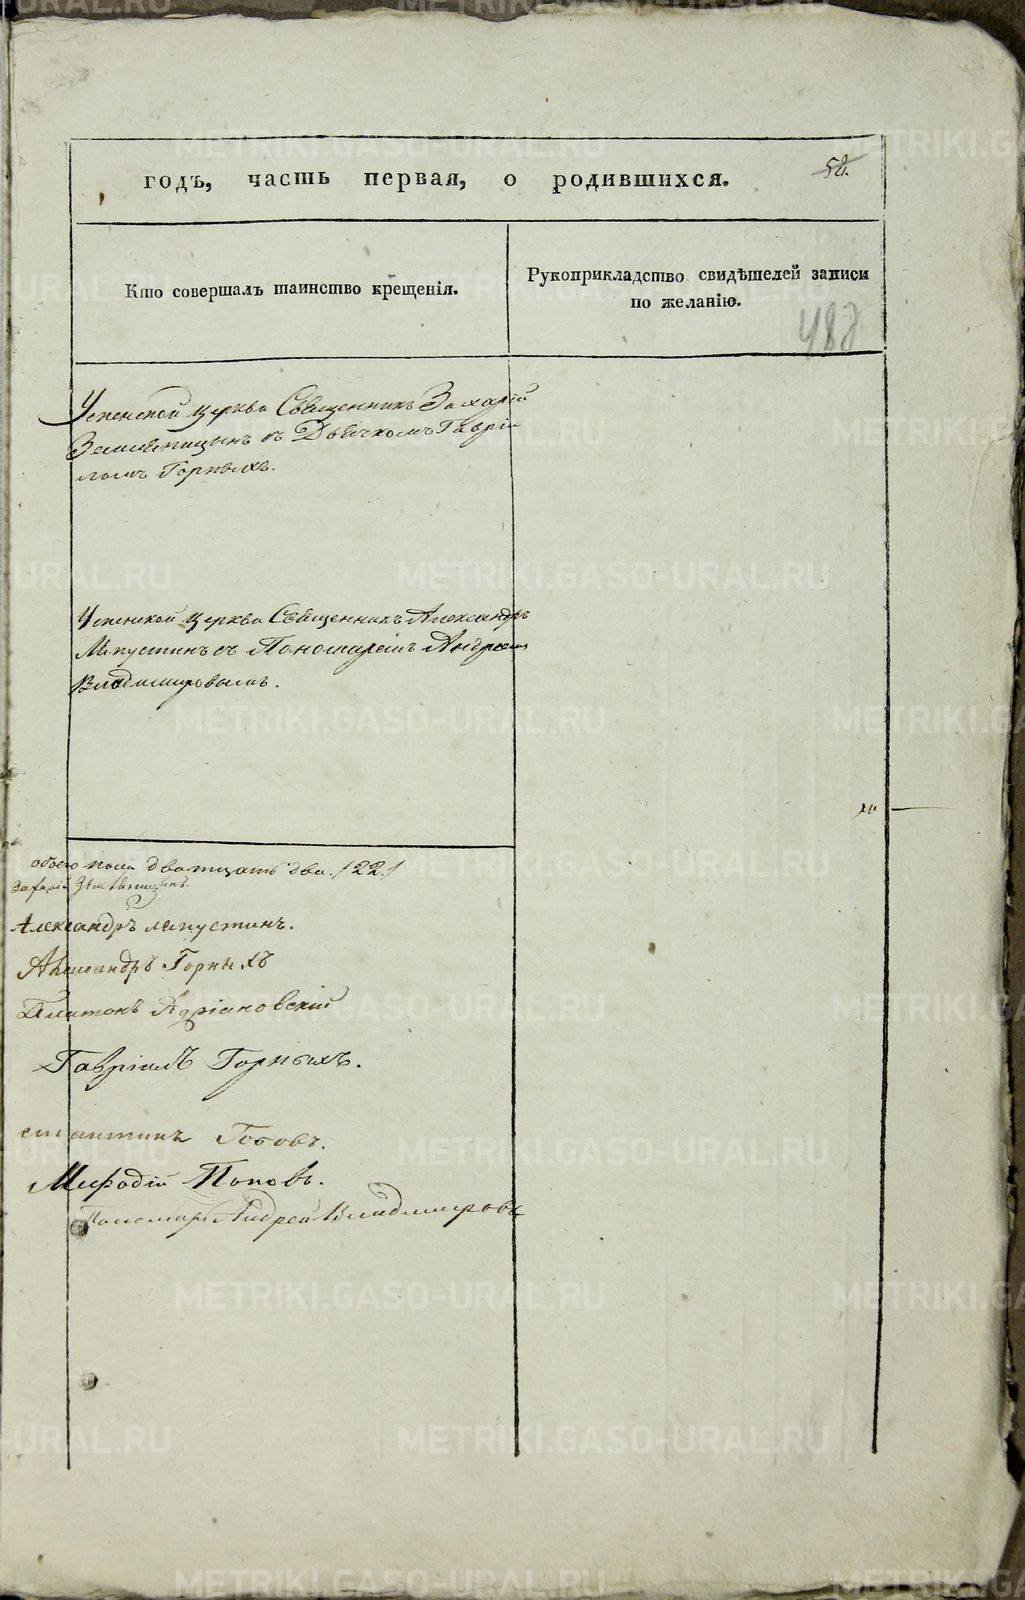 годъ, часть первая, о родившихся.
58.
Кто совершалъ таинство крещенія.
Рукоприкладство свидѣтелей записи
по желанію.
488
Успенской церкви Священникъ Захарій
Земляницынъ съ Дьячкомъ Гавріи
ломъ Горныхъ.
Успенской церкви Священникъ Александръ
Лепустинъ съ Пономаремъ Андреемъ
Владимировымъ.
обоего пола дватцать два. /22./
Захарій Земляницынъ.
Александръ Лепустинъ.
Александръ Горныхъ
Платонъ Адріановскій
Гавріилъ Горныхъ.
стантинъ
Мефодій Поповъ.
Пономарь Андрей Владимировъ
METRIKI.GASO-URAL.RU